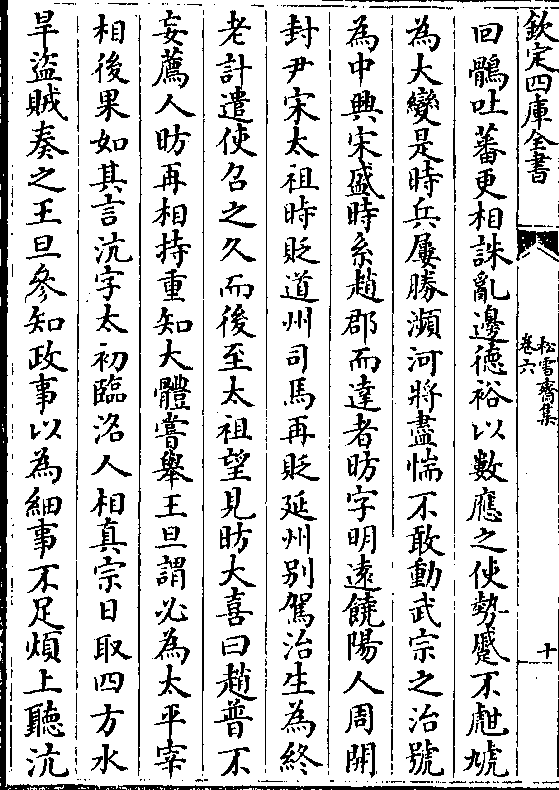 欽定四庫全書
松雪齋集
卷六
十
回鶻吐蕃更相誅亂邊德裕以數應之使勢蹙不虺虓
為大變是時兵屢勝瀕河將盡惴不敢動武宗之治號
為中興宋盛時系趙郡而達者昉字明遠饒陽人周開
封尹宋太祖時貶道州司馬再貶延州別駕治生為終
老計遣使召之久而後至太祖望見昉大喜曰趙普不
妄薦人昉再相持重知大體嘗舉王旦謂必為太平宰
相後果如其言沆字太初臨洺人相真宗日取四方水
旱盜賊奏之王旦參知政事以為細事不足煩上聽沆